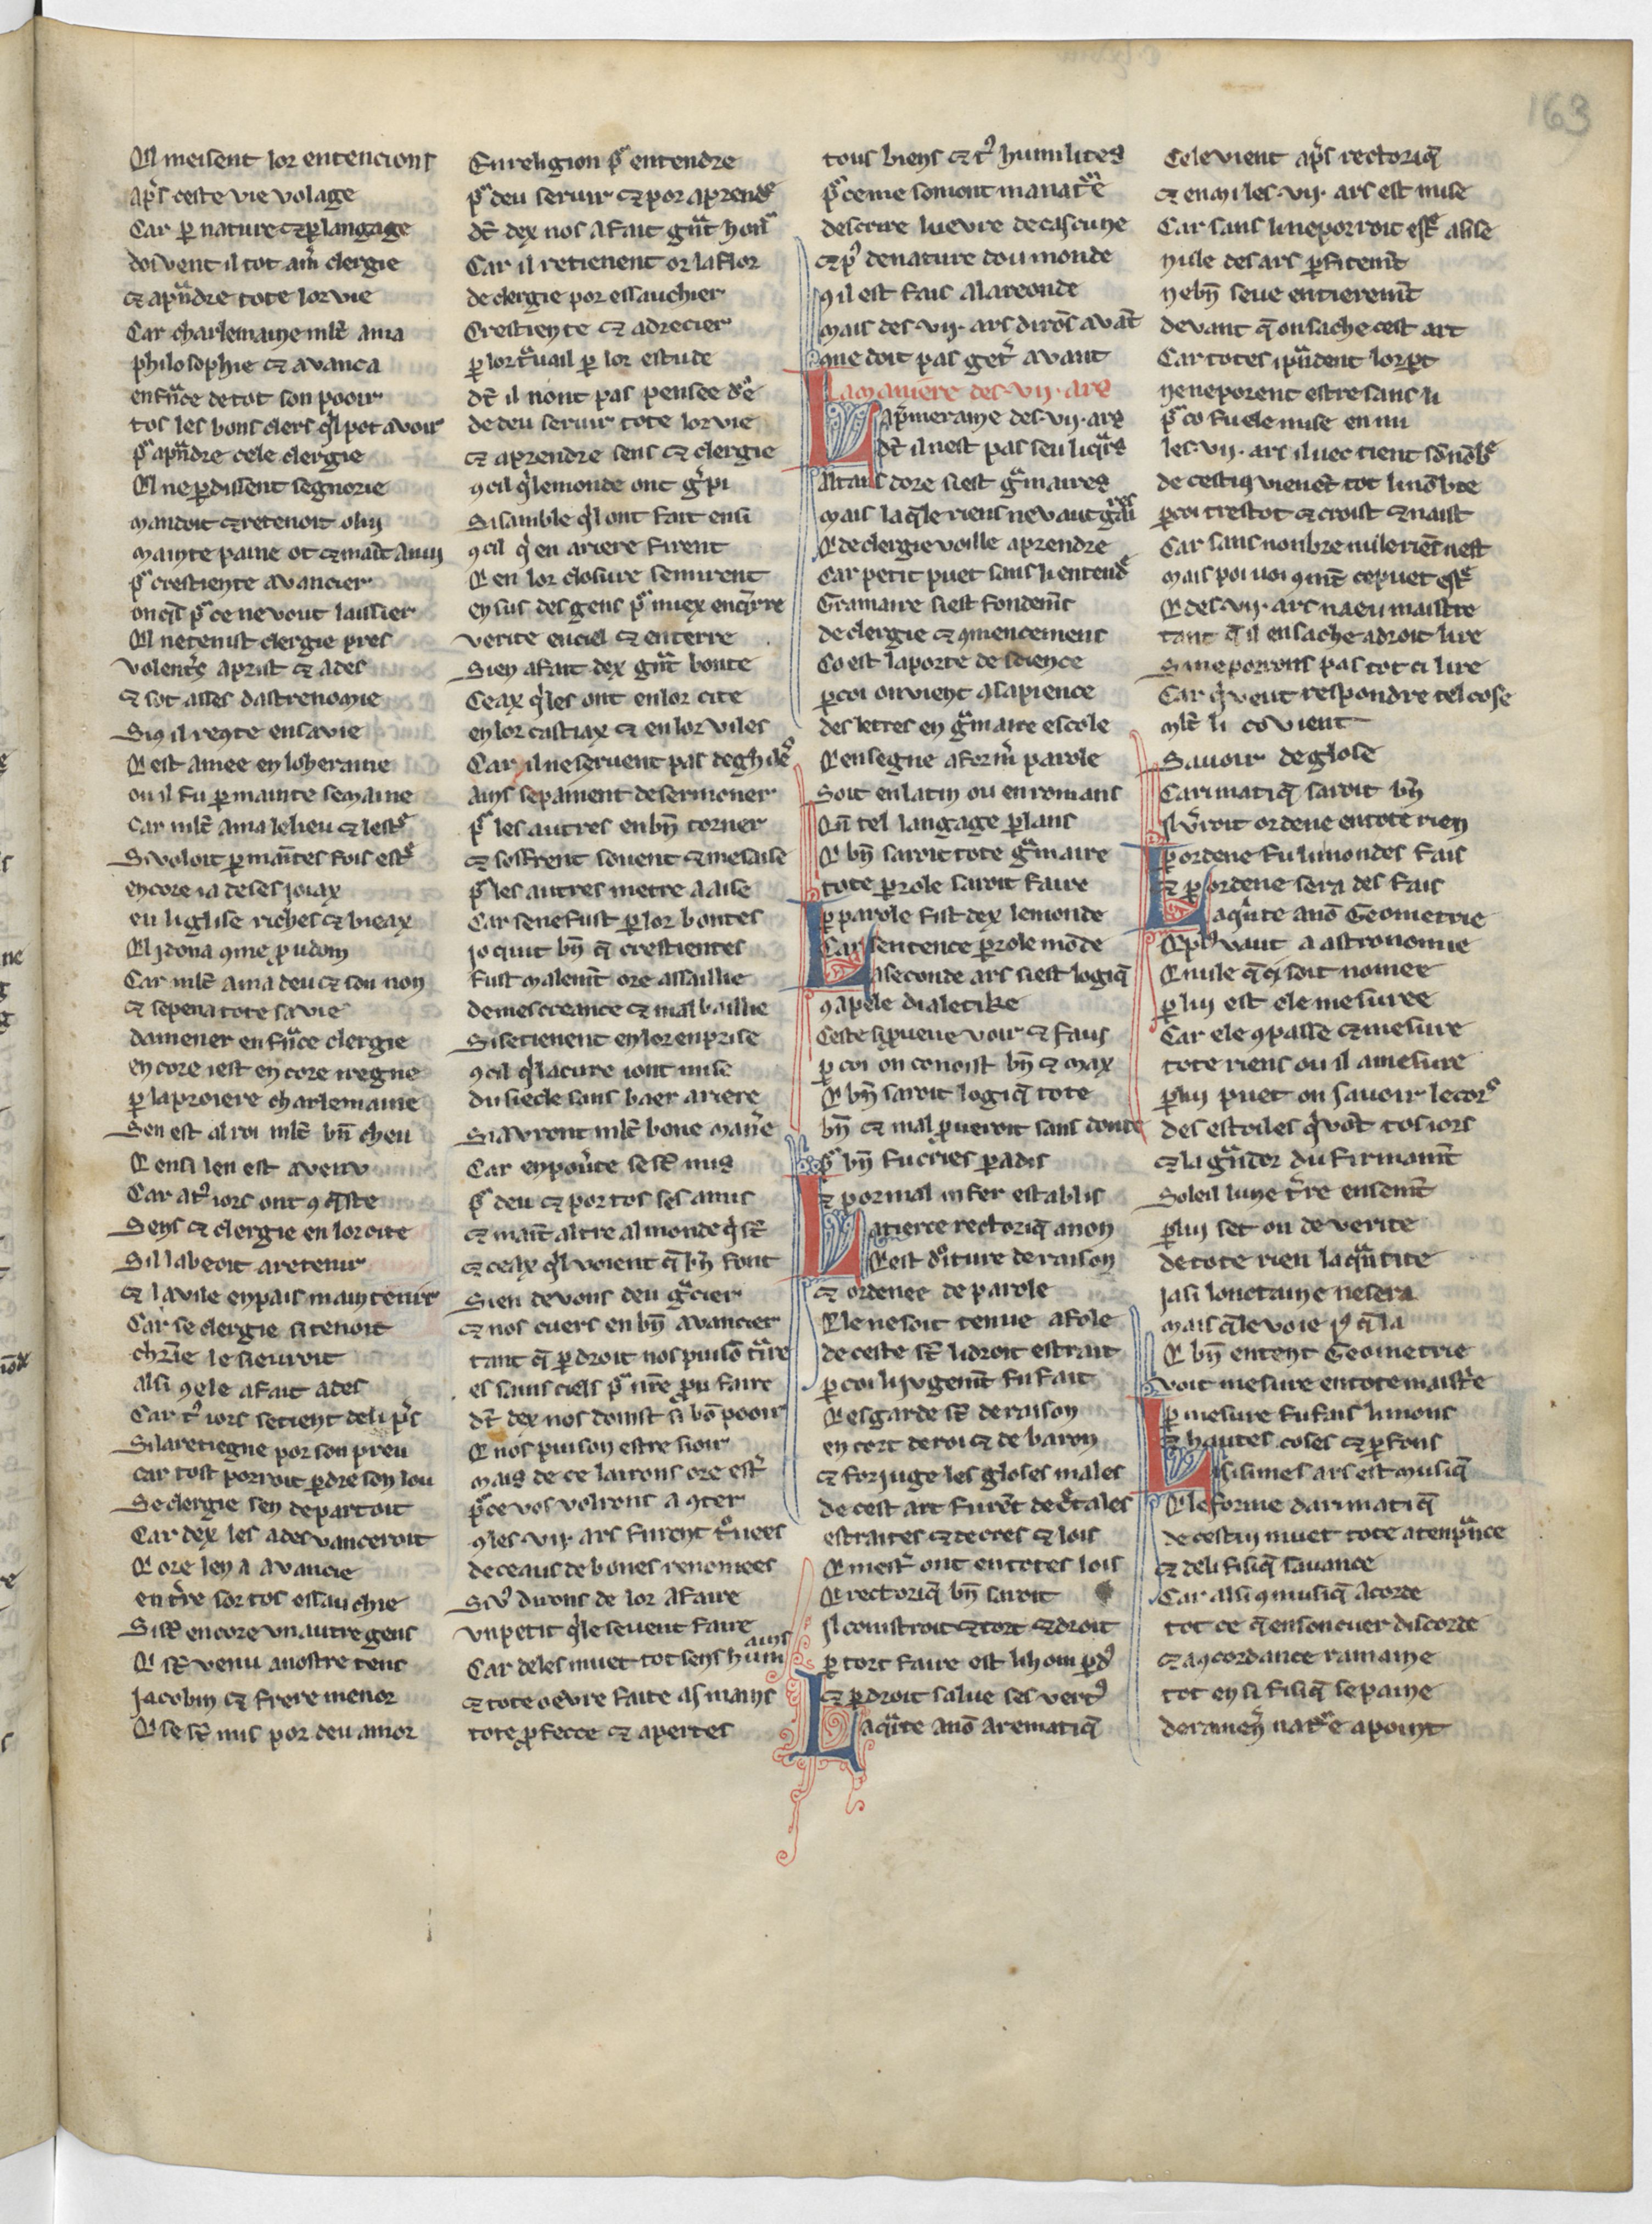 163
Ql meisent lor entencions
apͥs ceste vie volage
Car ꝑ nature ⁊ ꝑ langage
doivent il tot am̃ clergie
⁊ apᷓndre tote lor vie
Car charlemaine ml̃t ama
philosophie ⁊ avanca
en fᷓnce de tot son pooir
tos les bons clers qͥl pot avoir
pᷓ apᷓndre cele clergie
Ql ne ꝑdissent segnorie
mandoit ⁊ retenoit o lui
mainte paine ot ⁊ maĩt anui
pᷓ crestiente avancier
onqͥs pᷓ ce ne vout laissier
Ql ne tenist clergie pres
volentͥs aprist ⁊ ades
⁊ sot asses dastrenomie
Si 9 il regte en sa vie
Q est amee en loheraine
ou il fu ꝑ mainte semaine
Car ml̃t ama le lieu ⁊ lestͤ
Si voloit ꝑ maĩtes fois estͤ
encore ia de ses joiax
en liglise riches ⁊ bieax
Ql i dona 9me ꝓudom
Car ml̃t ama deu ⁊ son non
⁊ se pena tote sa vie
damener en fᷓnce clergie
encore iest encore iregne
ꝑ la proiere charlemaine
Sen est al roi ml̃t bñ cheu
Q ensi len est avenu
Car at᷒ iors ont 9qͥste
Sens ⁊ clergie en lor cite
Sil labeoit a retenir
⁊ la vile en pais maintenir
Car se clergie si tenoit
chr̃ie le sieuroit
alsi 9 ele a fait ades
Car t᷒ iors se tient de li pͥs
Si la retiegne por son preu
car tost porroit ꝑdre son lou
Se clergie sen departoit
Car dex les ades vanceroit
Q ore len a avancie
en tr̃e sor tos essauchie
Si st̃ encore un autre gens
Q st̃ venu a nostre tens
Jacobin ⁊ frere menor
Q se st̃ mis por deu amor
En religion pᷓ entendre
pᷓ deu servir ⁊ por aprendͤ
dt̃ dex nos a fait gᷓnt honᷓ
Car il retienent or la flor
de clergie por essauchier
Crestiente ⁊ adrecier
ꝑ lor tᷓuail ꝑ lor estude
dt̃ il nont pas pensee dͧe
de deu servir tote lor vie
⁊ aprendre sens ⁊ clergie
9 cil qͥ le monde ont gͥpi
Si samble qͥl ont fait ensi
9 cil qͥ en ariere firent
Q en lor closure se mirent
en sus des gens pᷓ miex enqͥrre
verite en ciel ⁊ en terre
Si en a fait dex gᷓnt bonte
Ceax qͥ les ont en lor cite
en lor castiax ⁊ en lor viles
Car il ne servent pas de ghilͤs
ains se painent de sermoner
pᷓ les autres en bñ torner
⁊ soffrent sovent ⁊ mesaise
pᷓ les autres metre a aise
Car se ne fust ꝑ lor bontes
jo quit bñ q̃ crestientes
fust malem̃t ore assaillie
de mescreance ⁊ mal baillie
Si se tienent en lor enprise
9 cil qͥ la cure i ont mise
du siecle sans baer ariere
Si avront ml̃t bone manͥe
Car en povͥte se st̃ mis
pᷓ deu ⁊ por tos ses amis
⁊ maĩt altre al monde qͥ st̃
⁊ ceax qͥl voient q̃ bñ font
Si en devons deu gᷓcier
⁊ nos cuers en bñ avancier
tant q̃ ꝑ droit nos puisõ tᷓire
es sains ciels pᷓ nr̃e ꝓu faire
dt̃ dex nos doinst si bõ pooir
Q nos puison estre sioir
mais de ce lairons ore estͤ
pᷓ ce vos volrons a 9ter
9 les vij. ars furent tͦuees
de ceaus de bones renomees
Si v᷒ dirons de lor afaire
un petit qͥ le sevent faire
Car deles muet tot sens humains
⁊ tote oevre faite as mains
tote ꝓfecce ⁊ apertes
tous biens ⁊ t᷒ humilites
pᷓ ce me somont ma natͬe
descrire luevre de cascune
⁊ p᷒ de nature dou monde
9 il est fais a la reonde
mais des vij. ars dirõs avãt
que doit pas getͤ avant
La maniere des vij. ars
La pͥmeraine des vij. ars
dt̃ il nest pas seu li qᷓrs
Al tans dore si est gᷓmaires
mais la qͤle riens ne vaut gᷓires
Q de clergie voille aprendre
Car petit puet sans li entendͤ
Gramaire si est fondem̃s
de clergie ⁊ 9mencemens
Co est la porte de science
ꝑ coi on vient a sapience
des letres en gᷓmaire escole
Q ensegne a form̃ parole
Soit en latin ou en romans
On tel langage ꝑlans
Q bñ saroit tote gᷓmaire
tote ꝑole saroit faire
ꝑ parole fist dex le monde
Car sentence ꝑole mõde
La seconde ars si est logiq̃
9 apele dialetike
Ceste si prueve voir ⁊ faus
ꝑ coi on conoist bñ ⁊ max
Q bñ saroit logiq̃ tote
bñ ⁊ mal ꝓueroit sans doute
pᷓ bñ fu cries paradis
⁊ por mal infer establis
La tierce rectoriq̃ a non
Q est dͦiture de raison
⁊ ordenee de parole
Qle ne soit tenue a fole
de ceste st̃ li droit estrait
ꝑ coi li jugem̃t fu fait
Q esgarde st̃ de raison
en cort de roi ⁊ de baron
⁊ forjuge les gloses males
de cest art furẽt decͤtales
estraites ⁊ decres ⁊ lois
Q mestͤ ont en totes lois
Q rectoriq̃ bñ saroit
Il conistroit ⁊ tort ⁊ droit
ꝑ tort faire est li hom ꝑd᷒
⁊ ꝑ droit salue ses vert᷒
La qᷓrte a nõ arematiq̃
Cele vient apͥs rectoriq̃
⁊ enmi les .vij. ars est mise
Car sans li ne porroit estͤ asise
nule des ars ꝑfitem̃t
ne bñ seue entierem̃t
devant q̃ on sache cest art
Car totes i pᷓndent lor part
ne ne porent estre sans li
pᷓ co fu ele mise en mi
les .vij. ars iluec tient sõ nõbͤ
de cestui vienẽt tot li nõbre
ꝑ coi trestot ⁊ croist ⁊ naist
Car sans nonbre nule riẽ nest
mais poi voi 9m̃t ce puet estͤ
Q des .vij. ars na eu maistre
tant q̃ il en sache a droit lire
Si ne porrons pas tot ci lire
Car qͥ veut respondre tel cose
ml̃t li covient
Savoir de glose
Q arimatiq̃ saroit bñ
Il vͤroit ordene en tote rien
ꝑ ordene fu li mondes fais
⁊ ꝑ ordene sera desfais
La qͥnte a nõ Geometrie
Q pl᷒ vaut a astronomie
Q nule q̃ qͥ soit nomee
ꝑ lui est ele mesuree
Car ele 9passe ⁊ mesure
tote riens ou il a mesure
ꝑ lui puet on savoir le corͤ
des estoiles qͥ võt tosiors
⁊ la gᷓndor du firmam̃t
Soleil lune tr̃re ensem̃t
ꝑ lui set on de verite
de tote rien la qᷓntite
ja si lonctaine ne sera
mais q̃ le voie p᷒ q̃ la
Q bñ entent Geometrie
voit mesure en tote maistͥe
ꝑ mesure fu fais li mons
⁊ hautes coses ⁊ ꝑfons
La sisimes ars est musiq̃
Q le forme darimatiq̃
de cestui muet tote atenpᷓnce
⁊ de li fisiq̃ savance
Car alsi 9 musiq̃ acorde
tot ce q̃ en son cuer discorde
⁊ a 9cordance ramaine
tot ensi fisiq̃ se paine
de ramenͤ natͬe a point